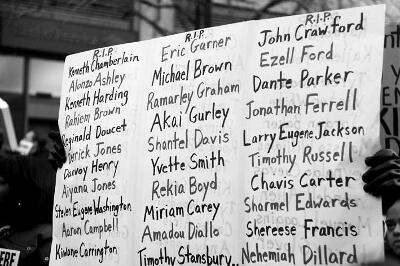 R.I.P.
Kenneth Chamberlain
Alonzo Ashley
Kenneth Harding
Raheim Brown
Reginald Doucet
Derrick Jones
Danroy Henry
Aiyana Jones
Steven Eugene Washington
Aaron Campbell
Kiwane Carrington
R.I.P.
Eric Garner
Michael Brown
Ramarley Graham
Akai Gurley
Shantel Davis
Yvette Smith
Rekia Boyd
Miriam Carey
Amadou Diallo
Timothy Stansbury..
R.I.P.
John Crawford
Ezell Ford
Dante Parker
Jonathan Ferrell
Larry Eugene Jackson
Timothy Russell
Chavis Carter
Sharmel Edwards
Shereese Francis
Nehemiah Dillard
ERE